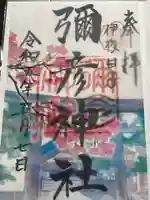 奉拝
伊夜日子
彌彦神社
令和年月七日